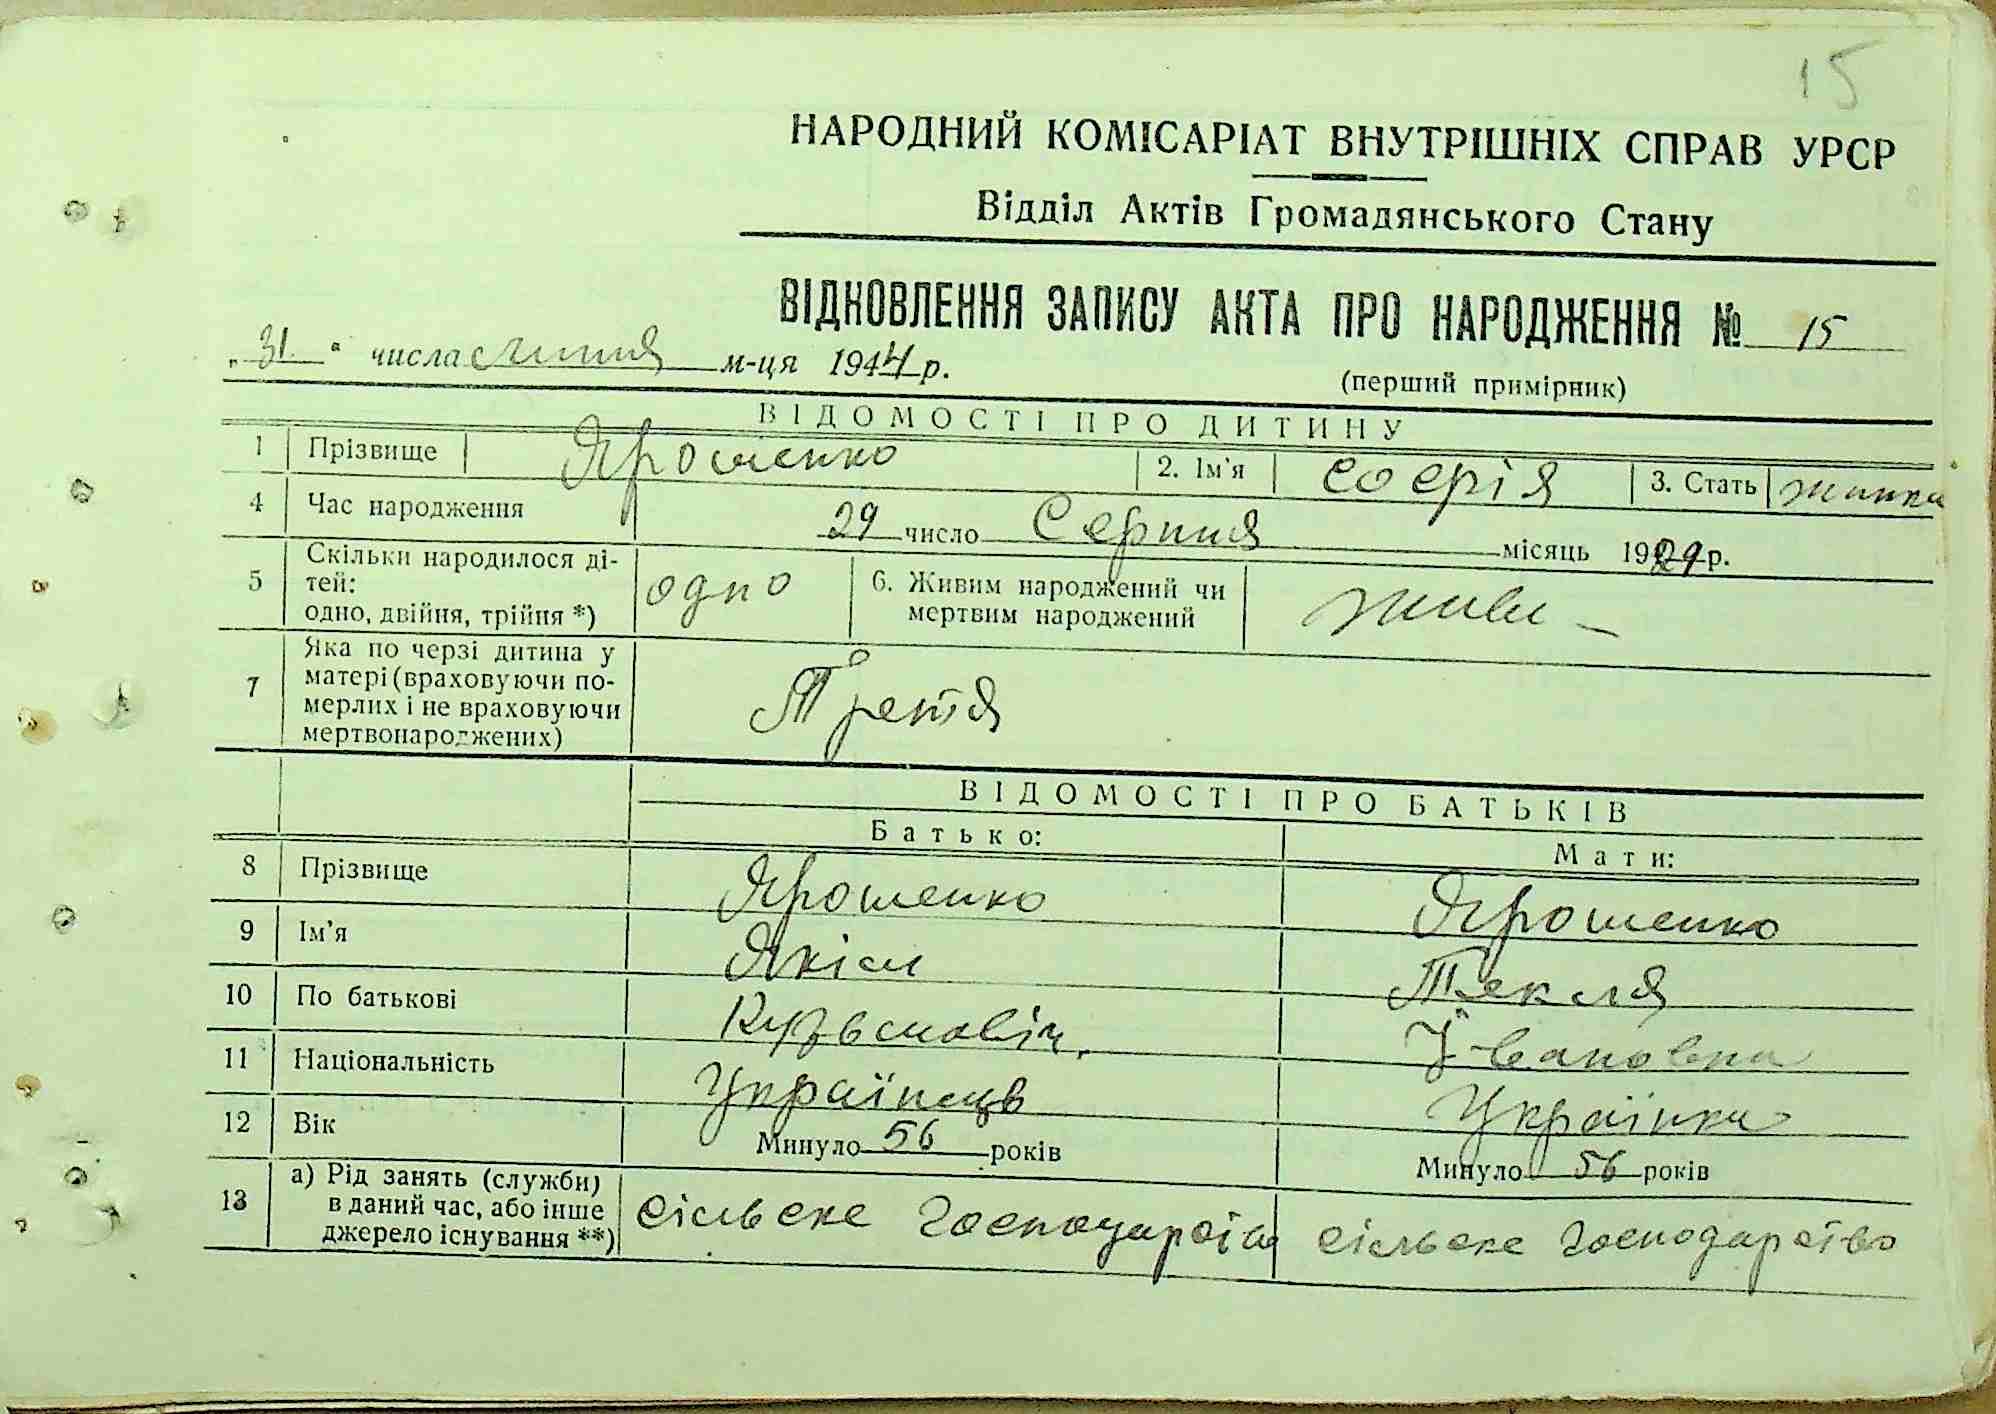 15
НАРОДНИЙ КОМІСАРІАТ ВНУТРІШНІХ СПРАВ УРСР
Відділ Актів Громадянського Стану
ВІДНОВЛЕННЯ ЗАПИСУ АКТА ПРО НАРОДЖЕННЯ № 15
„31“ числа липня м-ця 1944 р.
(перший примірник)
ВІДОМОСТІ ПРО ДИТИНУ
1 Прізвище Ярошенко 2. Ім'я Соєрія 3. Стать жинка
4 Час народження 29 число Серпня місяць 1929 р.
5 Скільки народилося ді-
тей:
одно, двійня, трійня *) одно
6. Живим народжений чи
мертвим народжений живи
7 Яка по черзі дитина у
матері (враховуючи по-
мерлих і не враховуючи
мертвонароджених) Третя
ВІДОМОСТІ ПРО БАТЬКІВ
Батько: Мати:
8 Прізвище Ярошенко Ярошенко
9 Ім'я Якім Текля
10 По батькові Кузьмовіч Івановна
11 Національність Українець Українка
12 Вік Минуло 56 років Минуло 56 років
13 а) Рід занять (служби)
в даний час, або інше
джерело існування **) сільске господарсів сільске господарство